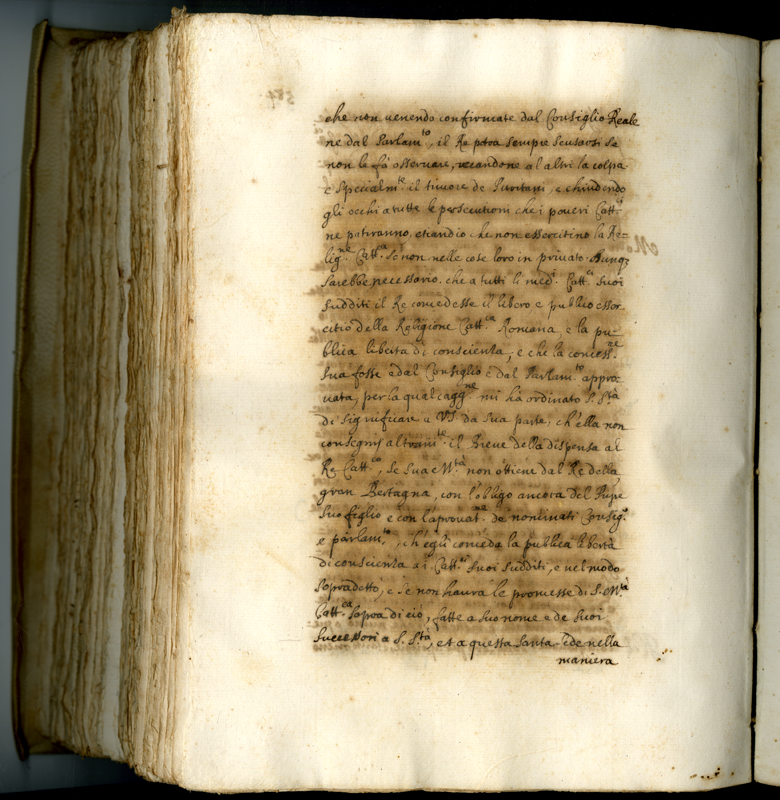 che non uenendo confirmate dal Consiglio Reale
ne dal Parlam.to, il Re potrà sempre scusarsi se
non le fà osseruare, recandone al altri la colpa
e specialm.te il timore de Puritani, e chiudendo
gli occhi a tutte le persecutioni che i poueri Catt.ci
ne patiranno, etiandio che non essercitino la Re-
lig.ne Catt.ca se non nelle cose loro in priuato. Dunq;
sarebbe necessario, che a tutti li med.i Catt.ci suoi
sudditi il Re concedesse il libero e publico esser-
citio della Religione Catt.ca Romana, e la pu-
blica libertà di conscienta, e che la concess.ne
sua fosse e dal Consiglio e dal Parlam.to appro-
uata, per la qual cagg.ne mi ha ordinato S. S.tà
di significare a VS. da sua parte, ch'ella non
consegni altram.te il Breue della dispensa al
Re Catt.co, se Sua M.tà non ottiene dal Re della
gran Bertagna, con l'obligo ancora del Prñpe
suo figlio e con l'aprouat.ne de nominati Consig.o
e parlam.to, ch'egli conceda la publica libertà
di conscienta a i Catt.ci suoi sudditi, e nel modo
sopradetto, e se non haurà le promesse di S. M.tà
Catt.ca sopra di ciò, fatte a suo nome e de suoi
successori a S. S.tà, et a questa Santa Sede nella
maniera